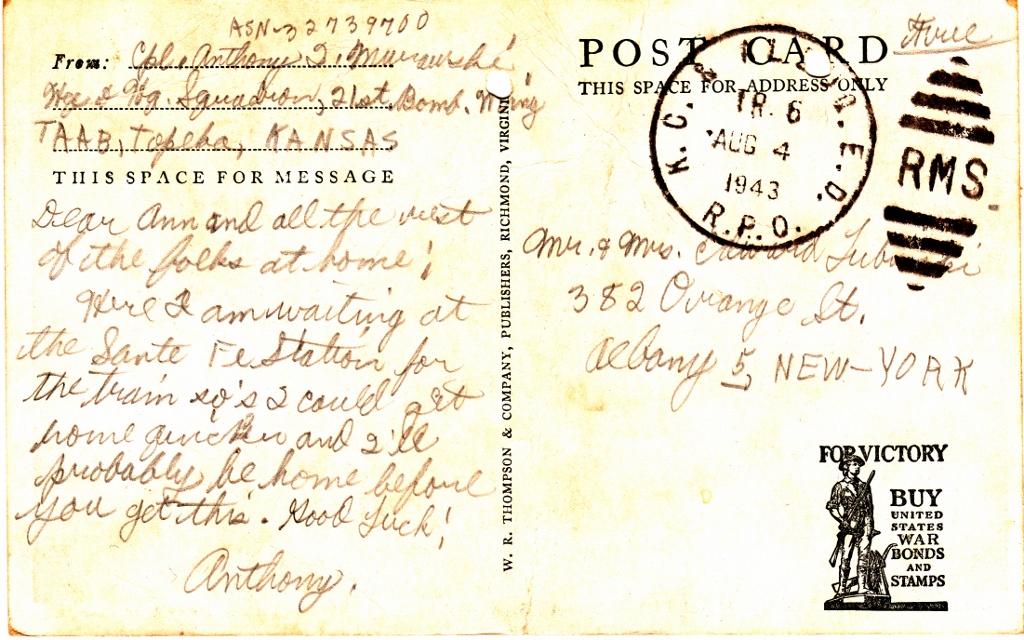 ASN-32739700
From: Cpl. Anthony J.
Hq & Hq. Squadron, 21st. Bomb. Wing
TAAB, Topeka, KANSAS
THIS SPACE FOR MESSAGE
Dear Ann and all the rest
of the folks at home!
Here I am waiting at
the Sante Fe Station for
the train so's I could get
home quicker and I'll
probably be home before
you get this. Good Luck!
Anthony.
W. R. THOMPSON & COMPANY, PUBLISHERS, RICHMOND, VIRGINI
POST CARD
THIS SPACE FOR ADDRESS ONLY
Free
K.C. & E.D.
TR. 6
AUG 4
1943
R.P.O.
RMS
Mr. & Mrs. Edward
382 Orange St.
Albany 5, NEW-YORK
FOR VICTORY
BUY
UNITED
STATES
WAR
BONDS
AND
STAMPS